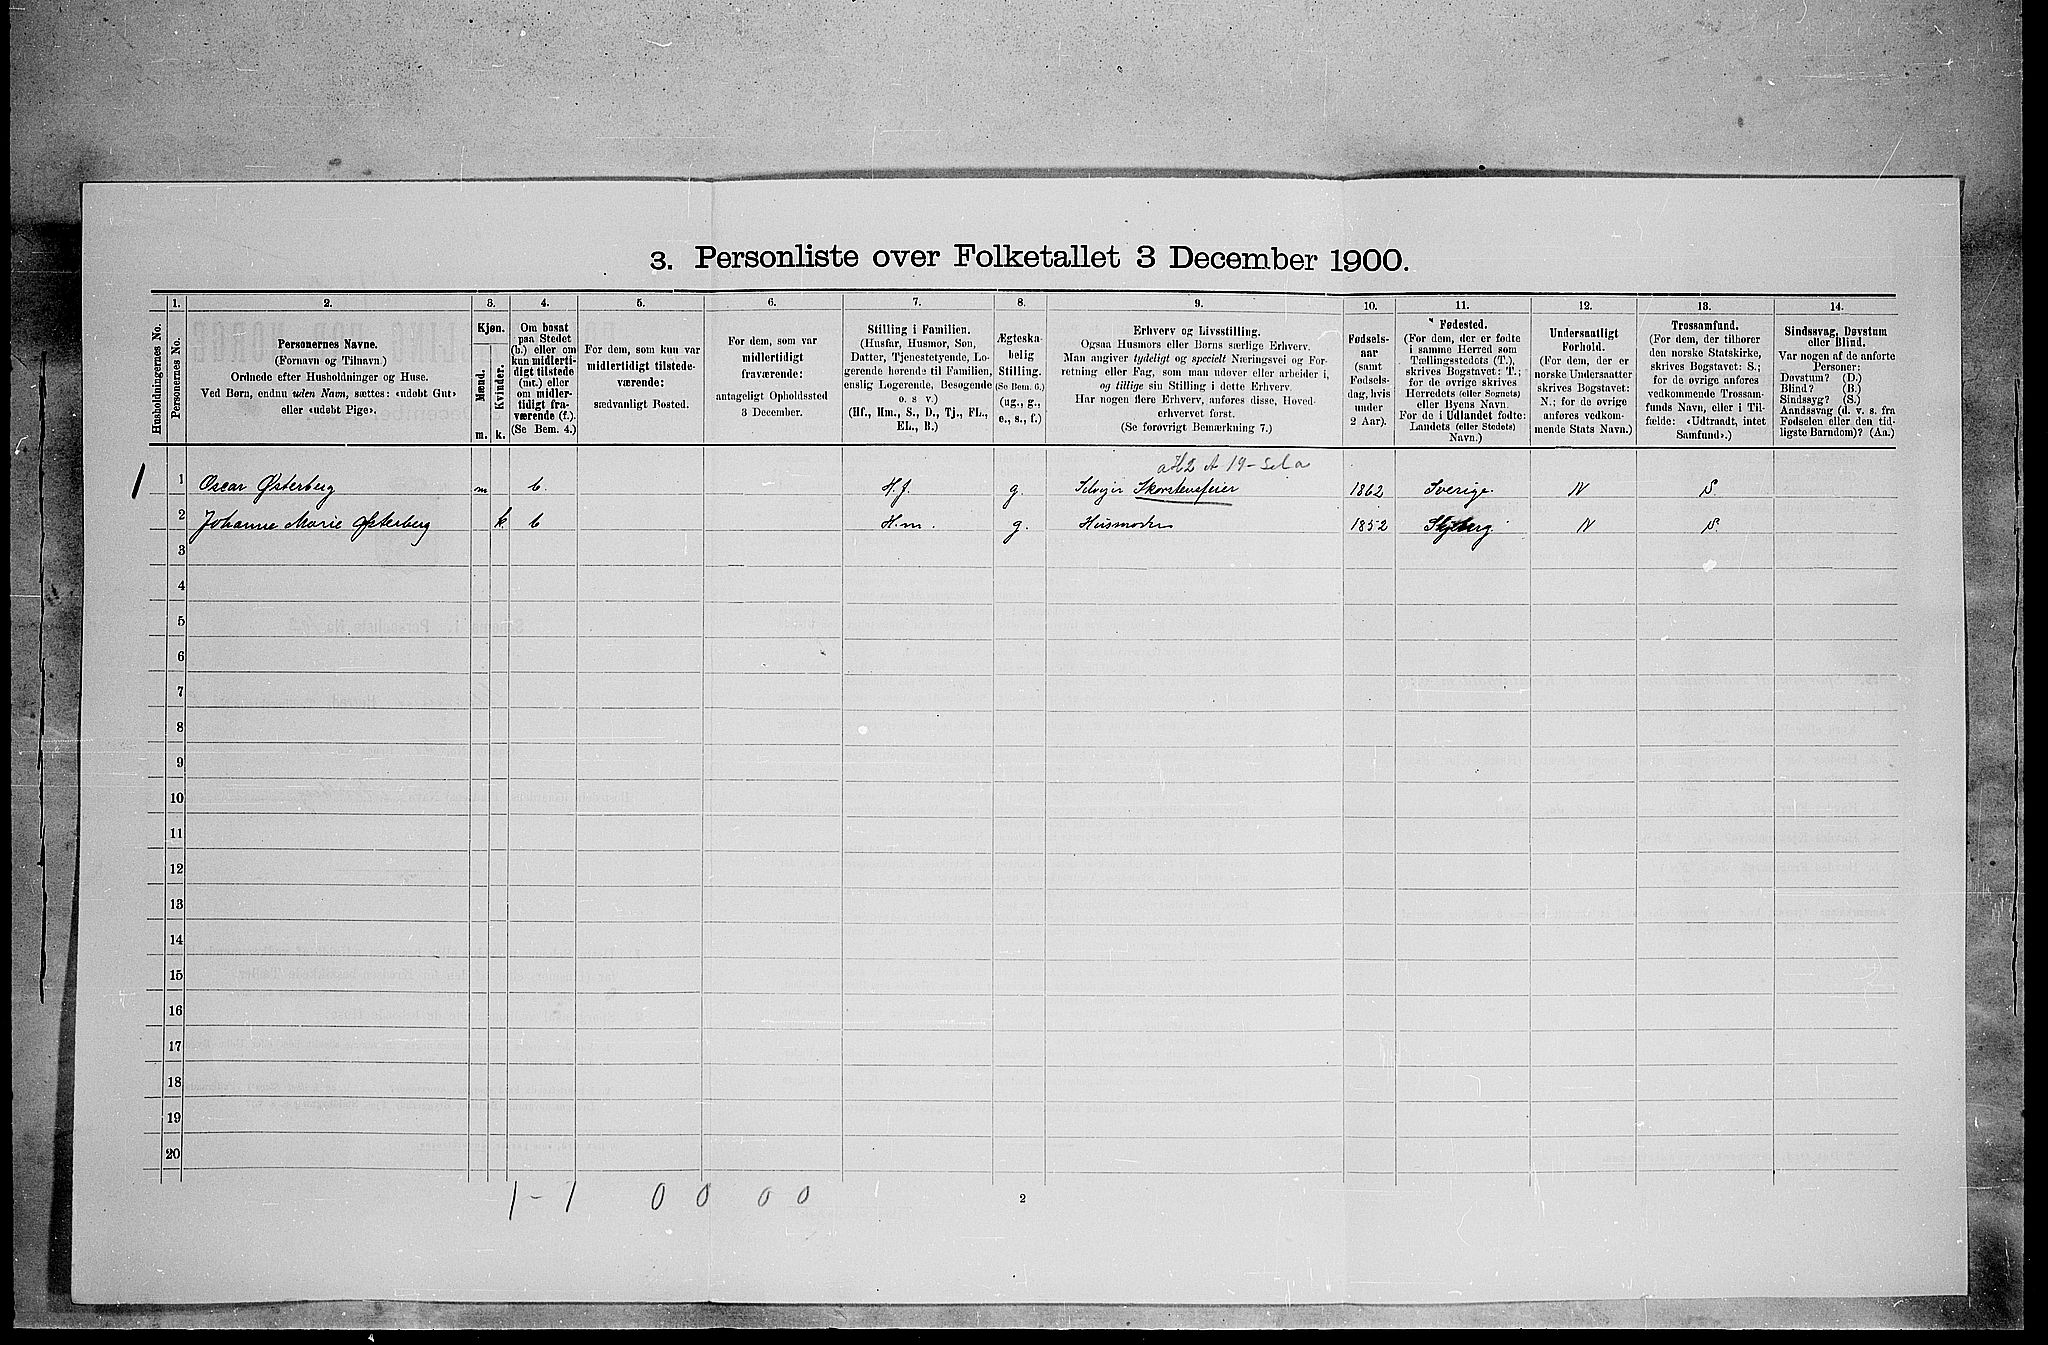 3. Personliste over Folketallet 3 December 1900.
1. 2. 3. 4. 5. 6. 7. 8. 9. 10. 11. 12. 13. 14.
Husholdningernes No.
Personernes No.
Personernes Navne.
(Fornavn og Tilnavn.)
Ordnede efter Husholdninger og Huse.
Ved Børn, endnu uden Navn, sættes: «udøbt Gut»
eller «udøbt Pige».
Kjøn.
Mænd.
Kvinder.
m. k.
Om bosat
paa Stedet
(b.) eller om
kun midlerti-
digt tilstede
(mt.) eller
om midler-
tidigt fra-
værende (f.).
(Se Bem. 4.)
For dem, som kun var
midlertidigt tilstede-
værende:
sædvanligt Bosted.
For dem, som var
midlertidigt
fraværende:
antageligt Opholdssted
3 December.
Stilling i Familien.
(Husfar, Husmor, Søn,
Datter, Tjenestetyende, Lo-
gerende hørende til Familien,
enslig Logerende, Besøgende
o. s v.)
(Hf., Hm., S., D., Tj., FL.,
EL., B.)
Ægteska-
belig
Stilling.
(Se Bem. 6.)
(ug., g.,
e., s., f.)
Erhverv og Livsstilling.
Ogsaa Husmors eller Børns særlige Erhverv.
Man angiver tydeligt og specielt Næringsvei og For-
retning eller Fag, som man udøver eller arbeider i,
og tillige sin Stilling i dette Erhverv.
Har nogen flere Erhverv, anføres disse, Hoved-
erhvervet først.
(Se forøvrigt Bemærkning 7.)
Fødsels-
aar
(samt
Fødsels-
dag, hvis
under
2 Aar).
Fødested.
(For dem, der er fødte
i samme Herred som
Tællingsstedets (T.),
skrives Bogstavet: T.;
for de øvrige skrives
Herredets (eller Sognets)
eller Byens Navn.
For de i Udlandet fødte:
Landets (eller Stedets)
Navn.)
Undersaatligt
Forhold.
(For dem, der er
norske Undersaatter
skrives Bogstavet:
N.; for de øvrige
anføres vedkom-
mende Stats Navn.)
Trossamfund.
(For dem, der tilhører
den norske Statskirke,
skrives Bogstavet: S.;
for de øvrige anføres
vedkommende Trossam-
funds Navn, eller i Til-
fælde: «Udtraadt, intet
Samfund».)
Sindssvag, Døvstum
eller Blind.
Var nogen af de anførte
Personer:
Døvstum? (D.)
Blind? (B.)
Sindssyg? (S.)
Aandssvag (d. v. s. fra
Fødselen eller den tid-
ligste Barndom)? (Aa.)
1 1 Oscar Østerberg m b. H.f. g. Selveier Skorstensfeier 1862 Sverige. N S.
2 Johanne Marie Østerberg k b H.m. g. Husmoder 1852 N S.
3
4
5
6
7
8
9
10
11
12
13
14
15
16
17
18
19
20
1 - 1 0 0 0 0
2